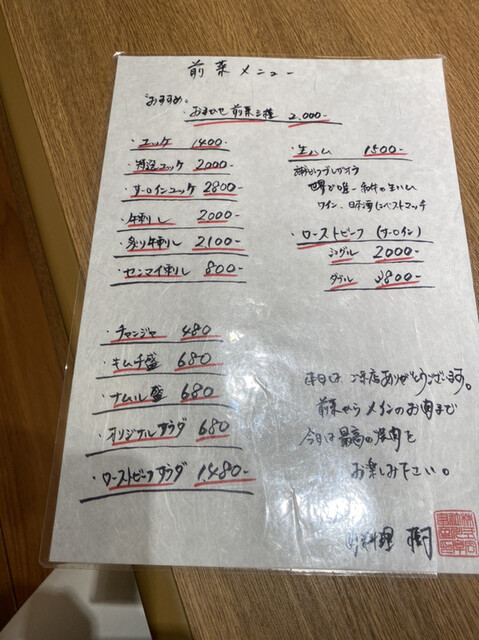 前菜メニュー
おすすめ。
・おまかせ前菜三種 2,000-
・ユッケ 1400-
・特選ユッケ 2000-
・サーロインユッケ 2800-
・牛刺し 2000-
・炙り牛刺し 2,100-
・センマイ刺し 800-
・チャンジャ 480
・キムチ盛 680
・ナムル盛 680
・オリジナルサラダ 680
・ローストビーフサラダ 1,480-
・生ハム 1500-
世界が唯一 和牛の生ハム
ワイン、日本酒にベストマッチ
・ローストビーフ(サーロイン)
シングル 2000-
ダブル 3800-
本日は、ご来店ありがとうございます。
前菜からメインのお肉まで
今日は最高の焼肉を
お楽しみ下さい。
料理 樹